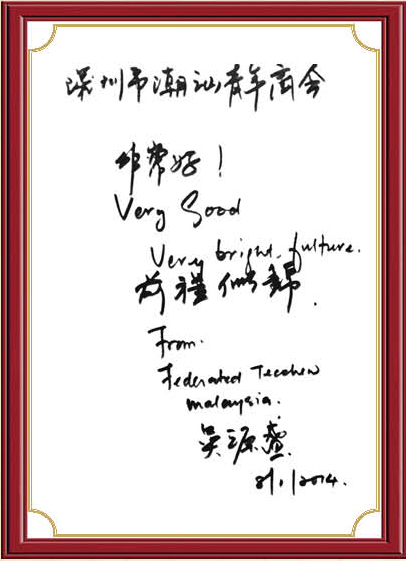 深圳市潮汕青年商会
非常好！
Very Good
Very bright fulture.
前程似錦.
From.
Federated Teochew
malaysia.
吴源
8/1/2014.